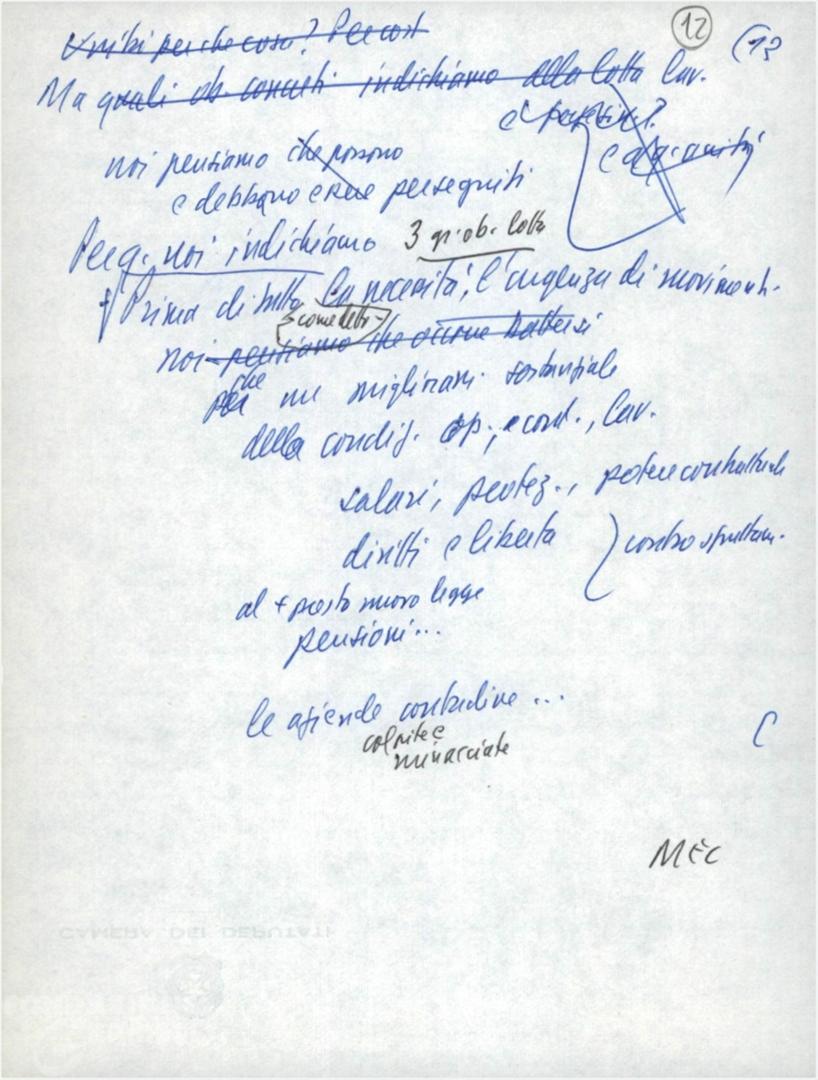 12 (13
perche cosa?
Ma quali ob. concreti indichiamo alla lotta lav.
noi pensiamo che possono
e debbano essere perseguiti
noi indichiamo 3 gr. ob. lotta
Prima di tutto la necessità, l'urgenza di
come detto
noi pensiamo che occorre battersi
che
un sostanziale
della condiz. op., econ., lav.
salari, potere contrattuale
diritti e libertà
contro sfruttam.
al + presto nuova legge
pensioni...
le aziende contadine ...
colpite e
minacciate
C
MEC
CAMERA DEI DEPUTATI